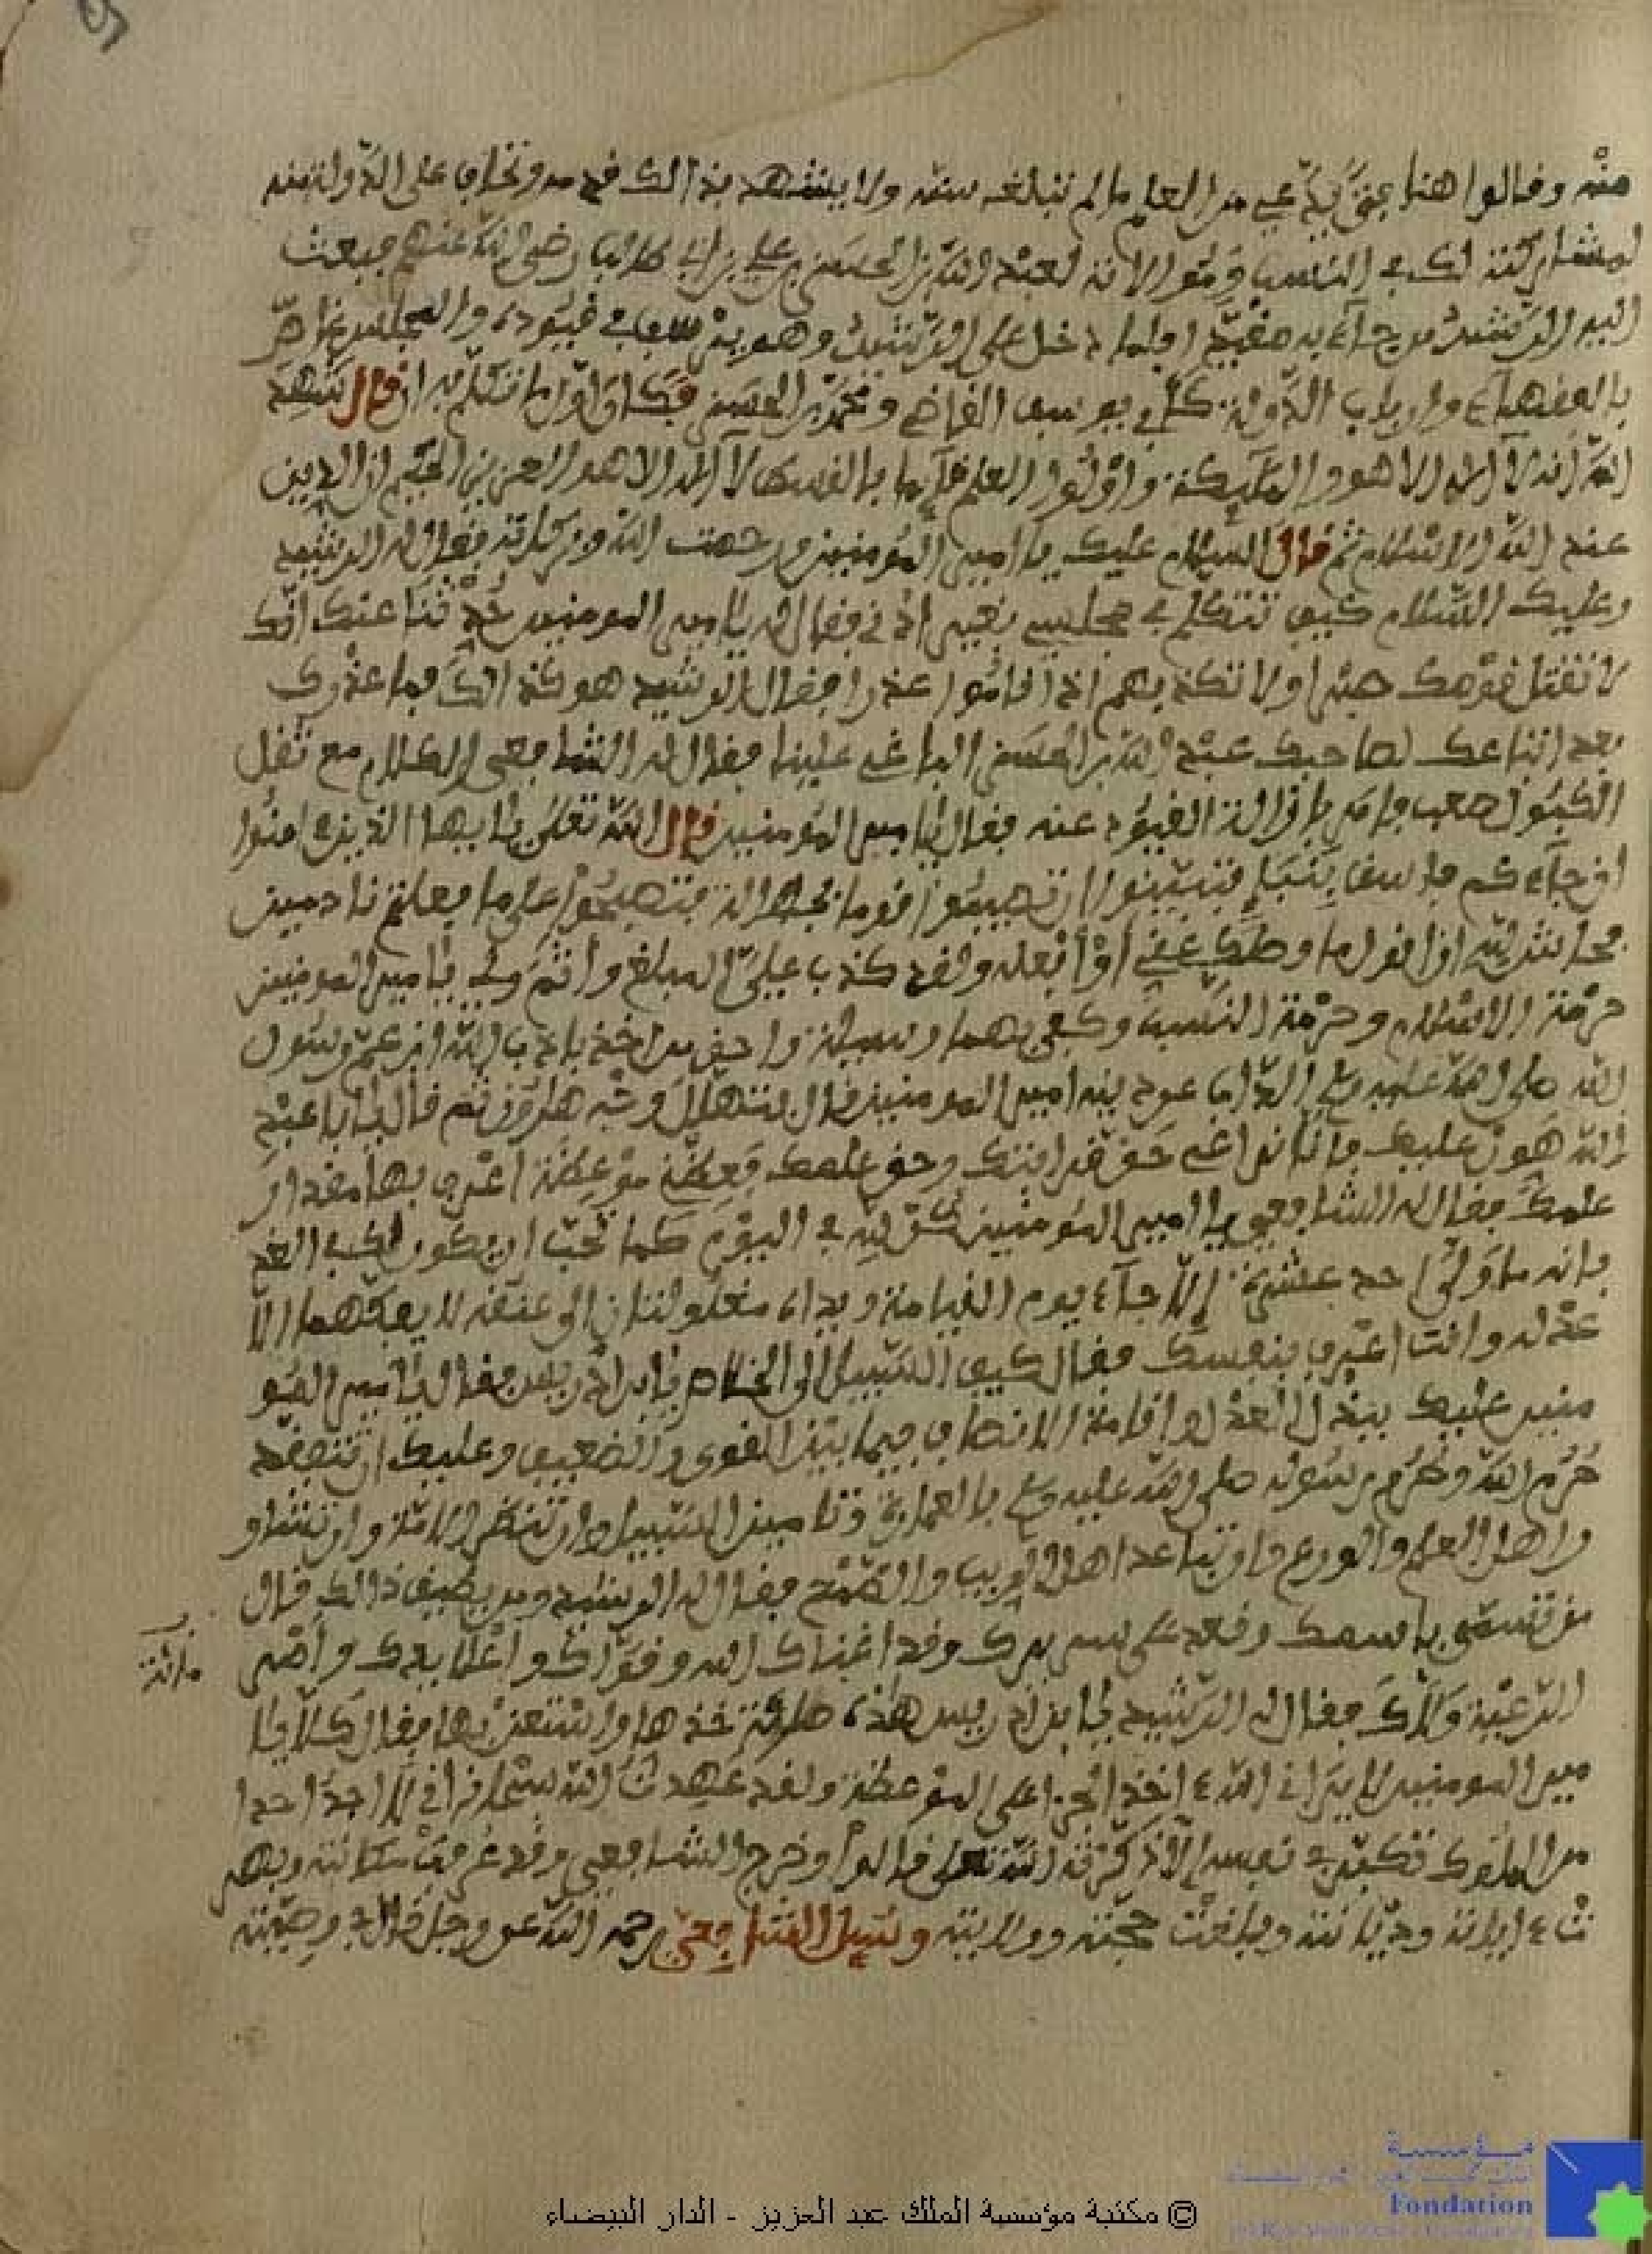 منه وقالوا هنا فتى يدعي من العلم ما لم تبلغه سنه ولا يشهد بذالك قدمه ونخاف على الدولة منه
لمشاركته لك في النسب وقوالاته لعبد الله بن الحسن بن علي بن أبي طالب رضي الله عنهم فبعث
إليه الرشيد من جآء به مقيدا فلما دخل على الرشيد وهو يرسف في قيوده والمجلس غاص
بالفقهآء وأرباب الدولة كأبي يوسف القاضي ومحمد بن الحسن فكان أول ما تكلم به ان قال شهد
الله أنه لا اله الا هو والملائكة وأولوا العلم قآئما بالقسط لا اله الا هو العزيز الحكيم ان الدين
عند الله الاسلام ثم قال السلام عليك يا امير المؤمنين ورحمت الله وبركاته فقال له الرشيد
وعليك السلام كيف تتكلم في مجلسي بغير اذني فقال له يا امير المومنين حدثنا عنك انك
لا تقتل قومك صبرا ولا تكذبهم اذا اقاموا عذرا فقال الرشيد هو كذالك فما عذرك
بعد اتباعك لصاحبك عبد الله بن الحسن الباغي علينا فقال له الشافعي الكلام مع ثقل
الكبول صعب فامر بازالة القيود عنه فقال يا امير المؤمنين قال الله تعلى يا ايها الذين امنوا
ان جآءكم فاسق بنبإ فتبينوا ان تصيبوا قوما بجهالة فتصبحوا على ما فعلتم نادمين
فحاش لله ان اقول ما وصلك عني أو أفعله ولقد كذب علي المبلغ وأنتم ولي يا امير المومنين
حرمة الاسلام وحرمة النسب وكفى بهما وسيلة واحق من اخذ باداب الله ابن عم رسول
الله صلى الله عليه وسلم الذاب عن دينه امير المومنين قال فتهلل وجه هارون ثم قال يا ابا عبد
الله هون عليك فانا نراعي حق قرابتك وحق علمك فعظني موعظة اعرف بها مقدار
علمك فقال له الشافعي يا امير المؤمنين كن لله في اليوم كما تحب ان يكون لك في الغد
فانه ما ولي احد عشرة إلا جآء يوم القيامة ويداه مغلولتان الى عنقه لا يفكهما الا
عدله وانت اعرف بنفسك فقال كيف السبيل الى الخلاص يا ابن ادريس فقال يا امير المو
منين عليك ببذل العدل واقامة الانصاف فيما بين القوي والضعيف وعليك ان تتفقد
حرم الله وحرم رسوله صلى الله عليه وسلم بالعمارة وتامين السبيل وان تنظر الامة وان تشاو
ر اهل العلم والورع وان تباعد اهل الريب والطمع فقال له الرشيد ومن يطيق ذالك قال
من تسمى باسمك وقعد على سريرك وقد اغناك الله وقواك واعلا يدك وأمر
الرعية والاك فقال له الرشيد يا ابن ادريس هذه صلة خذها واستعن بها فقال كلا يا ا
مير المومنين لا يراني الله ءاخذ اجرا على الموعظة ولقد عهدت الله سبحانه اني لا اجد احدا
من الملوك تكبر في نفسه إلا ذكرته الله تعلى قالوا وخرج الشافعي وقد عرفت مكانته وبهر
ت ءاياته وديانته وبلغت حجته وولايته وسئل الشافعي رحمه الله عز وجل قال في وصيته
© مكتبة مؤسسة الملك عبد العزيز - الدار البيضاء
مؤسسة
Fondation